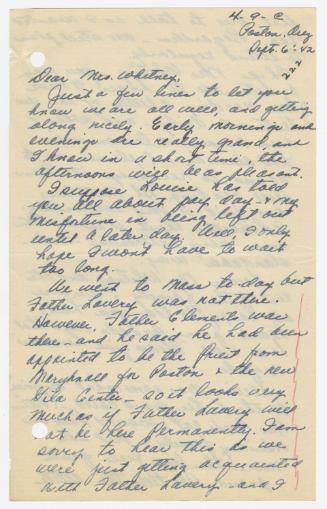 4-9-C
Poston, Ariz
Sept. 6-'42
222
Dear Mrs. Whitney,
Just a few lines to let you
know we are all well, and getting
along nicely. Early mornings and
evenings are really grand, and
I know in a short time, the
afternoons will be as pleasant.
I suppose Louise has told
you all about pay day - & my
misfortune in being left out
until a later day. Well, I only
hope I won't have to wait
too long.
We went to Mass to-day but
Father Lavery was not there.
However, Father Clements was
there - and he said he had been
appointed to be the Priest from
Maryknoll for Poston & the new
Gila Center - so it looks very
much as if Father Lavery will
not be here permanently. I am
sorry to hear this as we
were just getting acquainted
with Father Lavery - and I